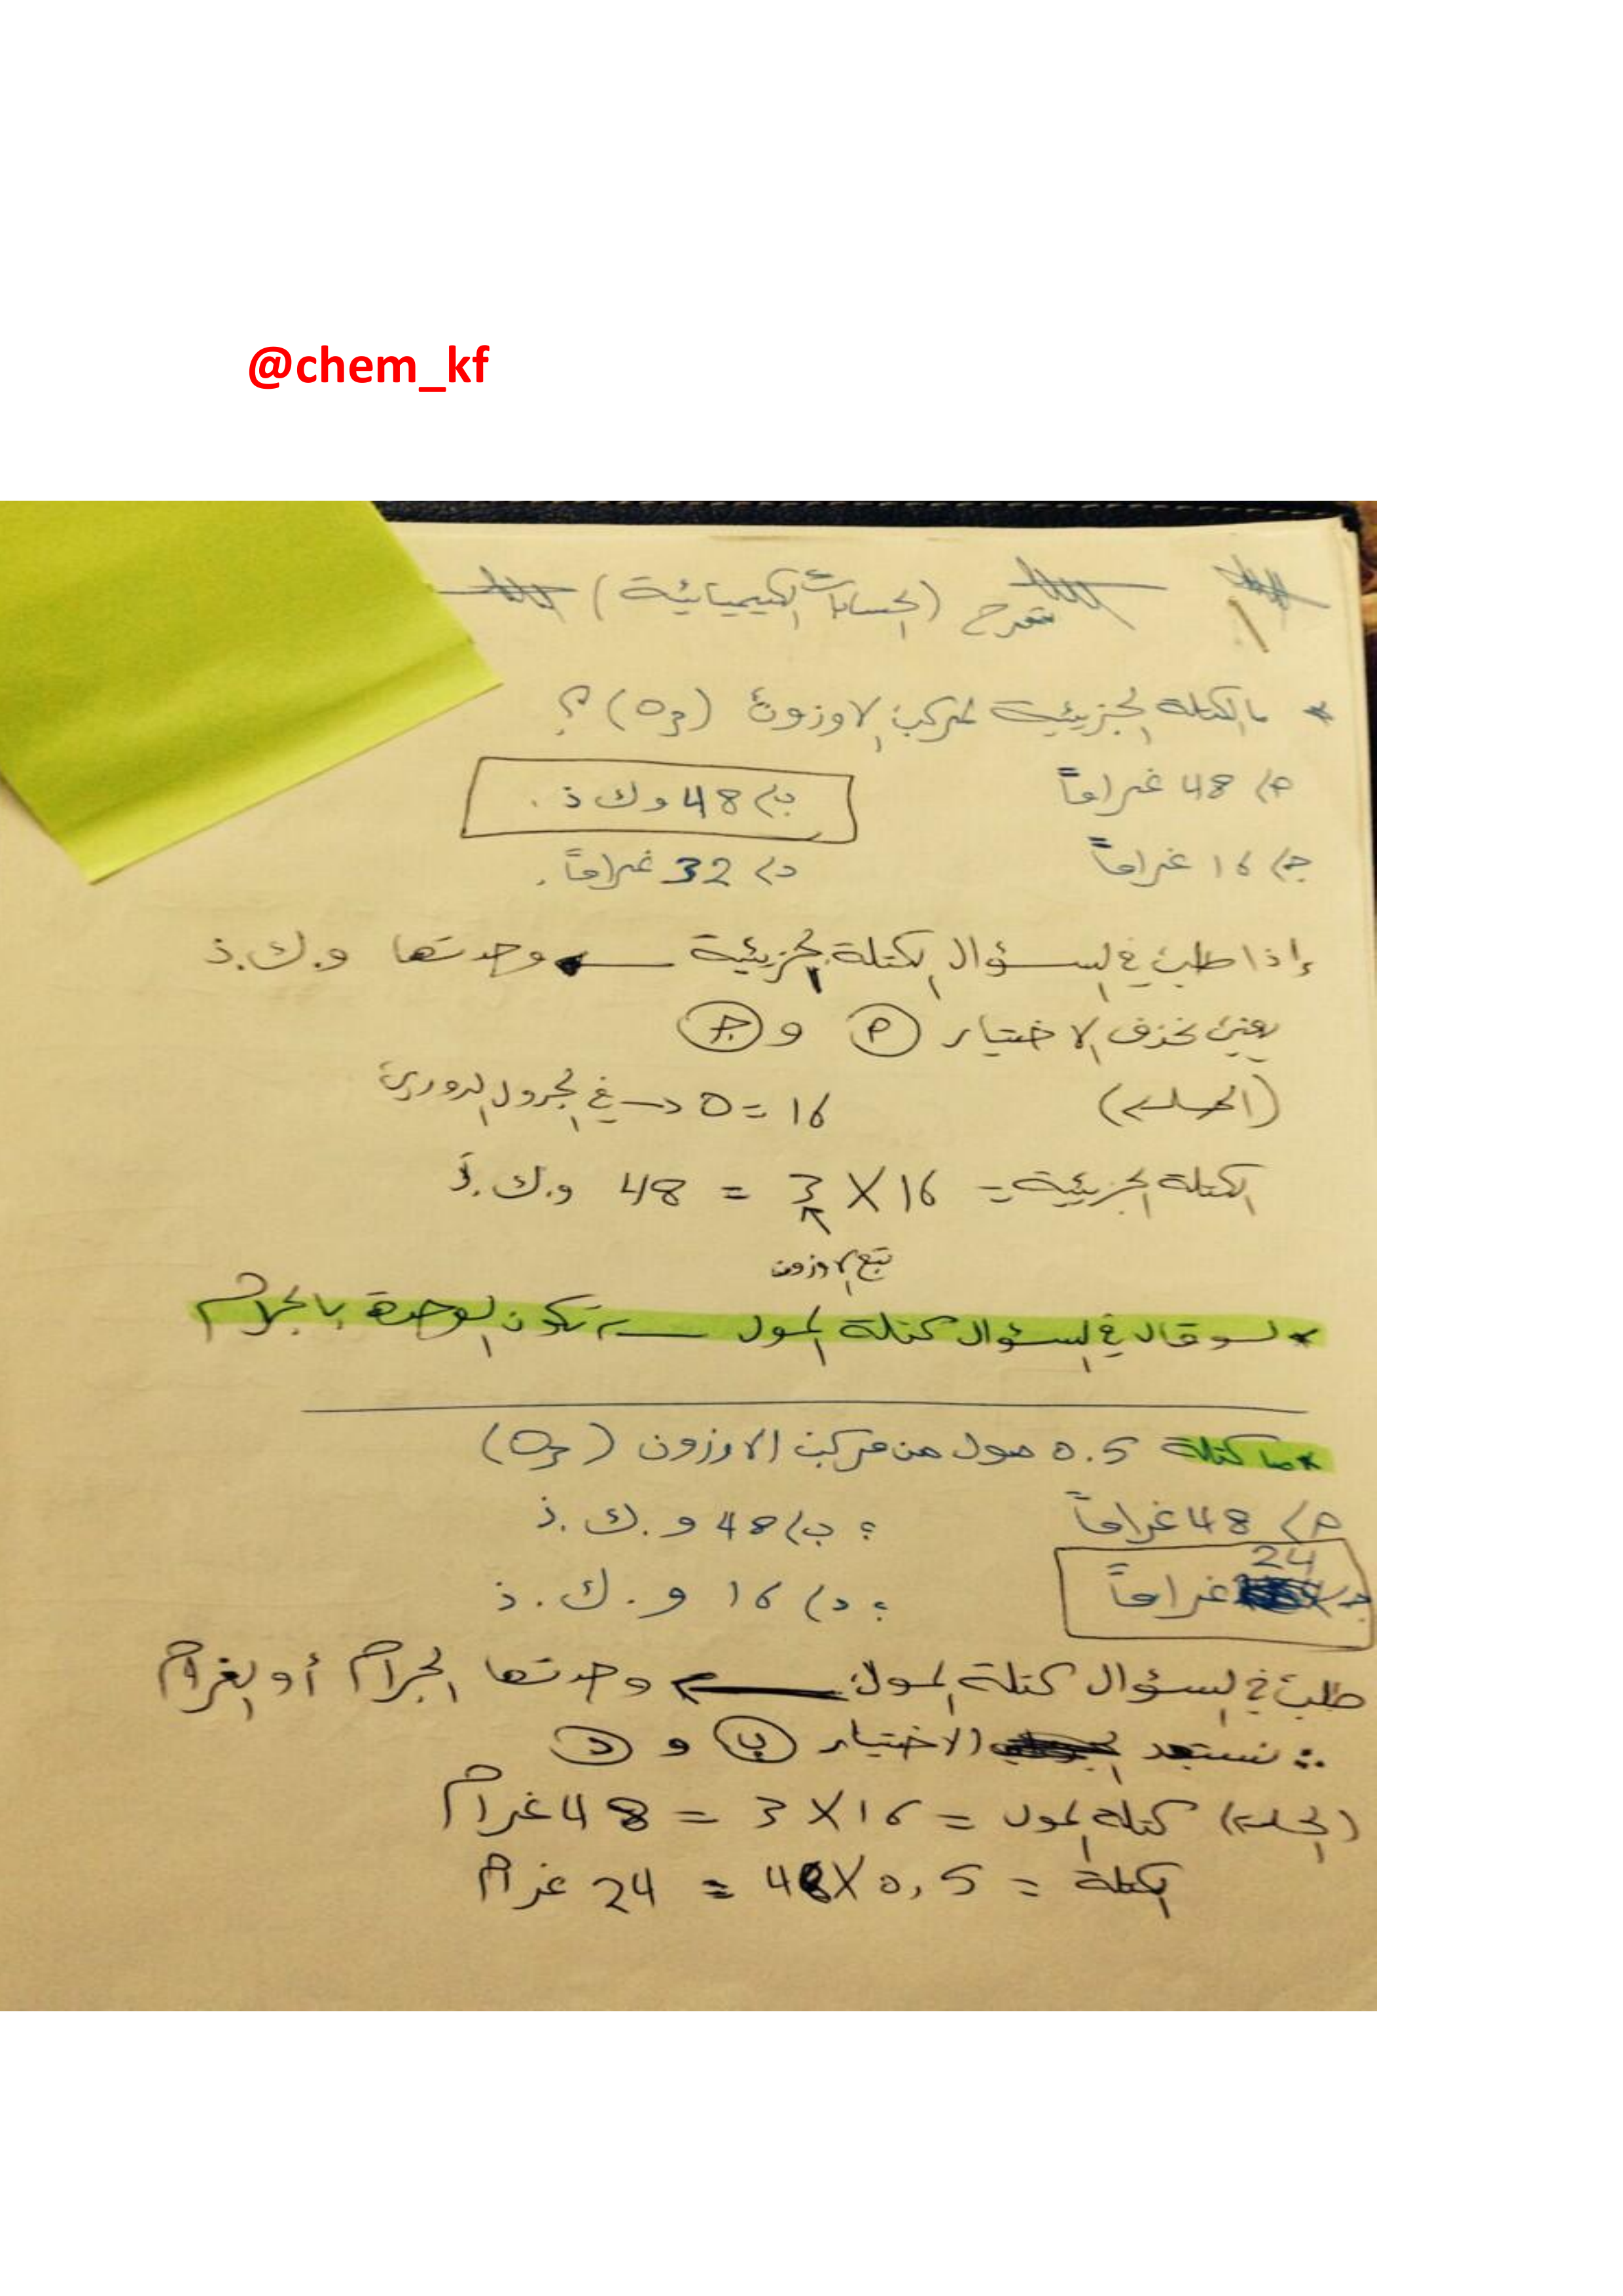 @chem_kf
شرح (الحسابات الكيميائية)
* ما الكتلة الجزيئية لمركب الاوزون (O3) ؟
أ) 48 غراماً
ب) 48 و ك ذ .
ج) 16 غراماً
د) 32 غراماً .
إذا طلب في السؤال الكتلة الجزيئية ← وحدتها و.ك.ذ
يعني نحذف الاختيار أ و ج
(الحل) 16 = O → في الجدول الدوري
الكتلة الجزيئية = 16 X 3 = 48 و.ك.ذ
تبع الاوزون
* لو قال في السؤال كتلة المول ← تكون الوحدة بالجرام
* ما كتلة 0.5 مول من مركب الاوزون (O3)
أ) 48 غراماً ؛ ب) 48 و.ك.ذ
ج) 24 غراماً ؛ د) 16 و.ك.ذ
طلب في السؤال كتلة المول ← وحدتها الجرام أو الغرام
∴ نستبعد الاختيار ب و د
(الحل) كتلة المول = 16 X 3 = 48 غرام
الكتلة = 0,5 X 48 = 24 غرام